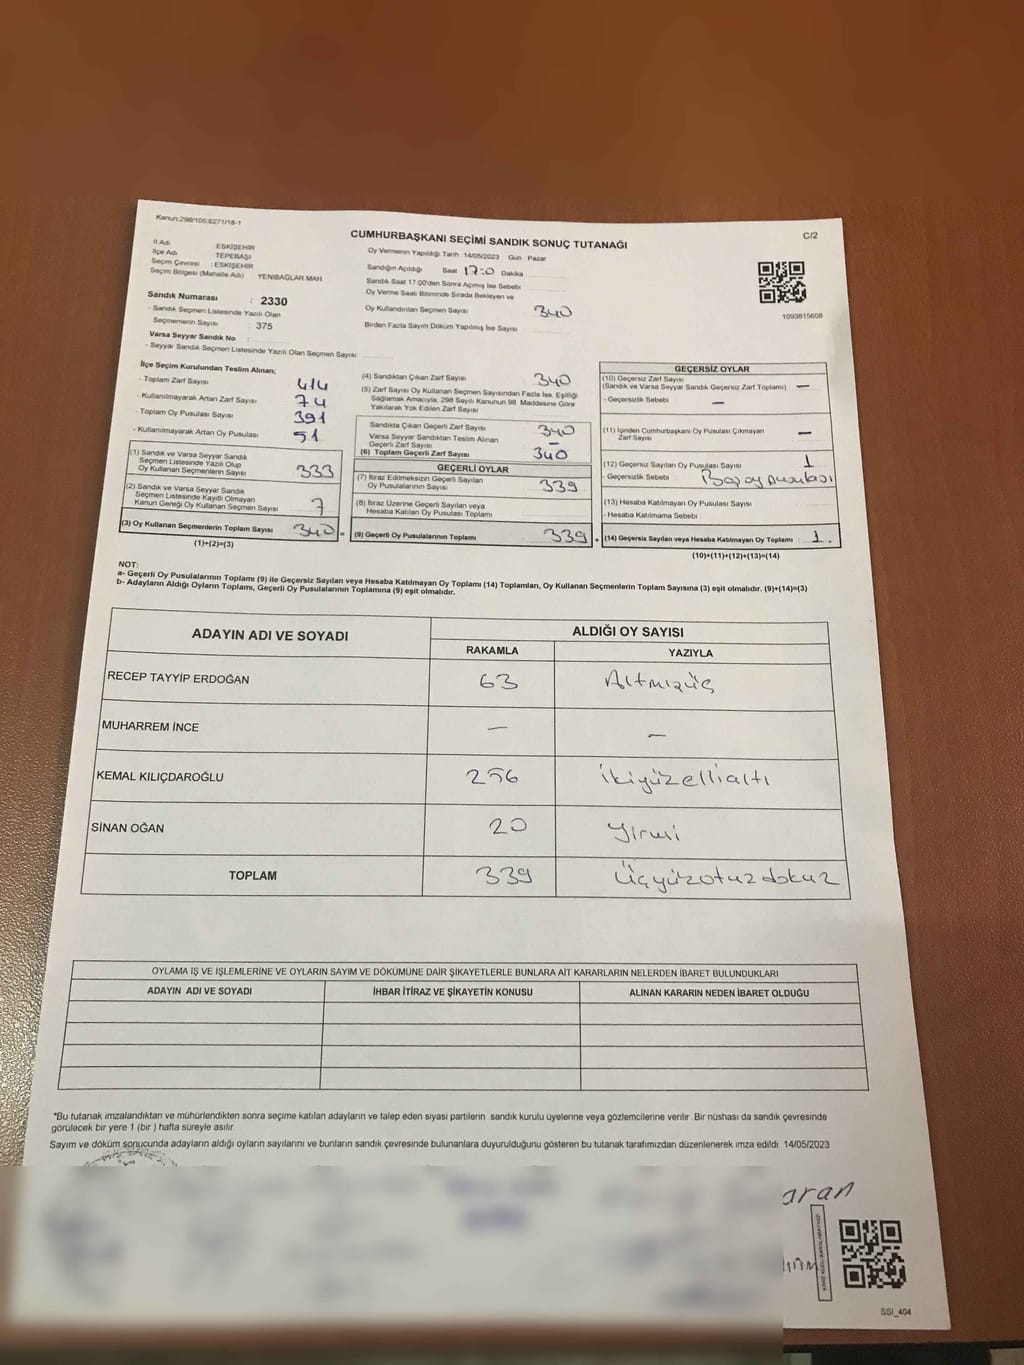 Kanun:298/105,6271/16-1
C/2
CUMHURBAŞKANI SEÇİMİ SANDIK SONUÇ TUTANAĞI
İl Adı : ESKİŞEHİR
İlçe Adı : TEPEBAŞI
Seçim Çevresi : ESKİŞEHİR
Seçim Bölgesi (Mahalle Adı) YENİBAĞLAR MAH.
Sandık Numarası : 2330
- Sandık Seçmen Listesinde Yazılı Olan
Seçmenlerin Sayısı : 375
Varsa Seyyar Sandık No :
- Seyyar Sandık Seçmen Listesinde Yazılı Olan Seçmen Sayısı
Oy Vermenin Yapıldığı Tarih : 14/05/2023 Gün : Pazar
Sandığın Açıldığı Saat 17:0 Dakika
Sandık Saat 17:00'den Sonra Açılmış İse Sebebi
Oy Verme Saati Bitiminde Sırada Bekleyen ve
Oy Kullandırılan Seçmen Sayısı 340
Birden Fazla Sayım Döküm Yapılmış İse Sayısı
1093815608
İlçe Seçim Kurulundan Teslim Alınan;
- Toplam Zarf Sayısı 414
- Kullanılmayarak Artan Zarf Sayısı 74
- Toplam Oy Pusulası Sayısı 391
- Kullanılmayarak Artan Oy Pusulası 51
(1) Sandık ve Varsa Seyyar Sandık
Seçmen Listesinde Yazılı Olup
Oy Kullanan Seçmenlerin Sayısı 333
(2) Sandık ve Varsa Seyyar Sandık
Seçmen Listesinde Kayıtlı Olmayan
Kanun Gereği Oy Kullanan Seçmen Sayısı 7
(3) Oy Kullanan Seçmenlerin Toplam Sayısı 340 =
(1)+(2)=(3)
(4) Sandıktan Çıkan Zarf Sayısı 340
(5) Zarf Sayısı Oy Kullanan Seçmen Sayısından Fazla İse, Eşitliği
Sağlamak Amacıyla, 298 Sayılı Kanunun 98. Maddesine Göre
Yakılarak Yok Edilen Zarf Sayısı
Sandıkta Çıkan Geçerli Zarf Sayısı 340
Varsa Seyyar Sandıktan Teslim Alınan
Geçerli Zarf Sayısı —
(6) Toplam Geçerli Zarf Sayısı 340
GEÇERLİ OYLAR
(7) İtiraz Edilmeksizin Geçerli Sayılan
Oy Pusulalarının Sayısı 339
(8) İtiraz Üzerine Geçerli Sayılan veya
Hesaba Katılan Oy Pusulası Toplamı
(9) Geçerli Oy Pusulalarının Toplamı 339 +
GEÇERSİZ OYLAR
(10) Geçersiz Zarf Sayısı
(Sandık ve Varsa Seyyar Sandık Geçersiz Zarf Toplamı) —
- Geçersizlik Sebebi —
(11) İçinden Cumhurbaşkanı Oy Pusulası Çıkmayan
Zarf Sayısı —
(12) Geçersiz Sayılan Oy Pusulası Sayısı 1
- Geçersizlik Sebebi Boş oy pusulası
(13) Hesaba Katılmayan Oy Pusulası Sayısı
- Hesaba Katılmama Sebebi
(14) Geçersiz Sayılan veya Hesaba Katılmayan Oy Toplamı : 1.
(10)+(11)+(12)+(13)=(14)
NOT:
a- Geçerli Oy Pusulalarının Toplamı (9) ile Geçersiz Sayılan veya Hesaba Katılmayan Oy Toplamı (14) Toplamları, Oy Kullanan Seçmenlerin Toplam Sayısına (3) eşit olmalıdır. (9)+(14)=(3)
b- Adayların Aldığı Oyların Toplamı, Geçerli Oy Pusulalarının Toplamına (9) eşit olmalıdır.
ADAYIN ADI VE SOYADI
ALDIĞI OY SAYISI
RAKAMLA YAZIYLA
RECEP TAYYİP ERDOĞAN 63 Altmışüç
MUHARREM İNCE — —
KEMAL KILIÇDAROĞLU 256 İkiyüzellialtı
SİNAN OĞAN 20 Yirmi
TOPLAM 339 Üçyüzotuzdokuz
OYLAMA İŞ VE İŞLEMLERİNE VE OYLARIN SAYIM VE DÖKÜMÜNE DAİR ŞİKAYETLERLE BUNLARA AİT KARARLARIN NELERDEN İBARET BULUNDUKLARI
ADAYIN ADI VE SOYADI İHBAR İTİRAZ VE ŞİKAYETİN KONUSU ALINAN KARARIN NEDEN İBARET OLDUĞU
*Bu tutanak imzalandıktan ve mühürlendikten sonra seçime katılan adayların ve talep eden siyasi partilerin sandık kurulu üyelerine veya gözlemcilerine verilir. Bir nüshası da sandık çevresinde
görülecek bir yere 1 (bir) hafta süreyle asılır.
Sayım ve döküm sonucunda adayların aldığı oyların sayılarını ve bunların sandık çevresinde bulunanlara duyurulduğunu gösteren bu tutanak tarafımızdan düzenlenerek imza edildi. 14/05/2023
aran
SSI_404